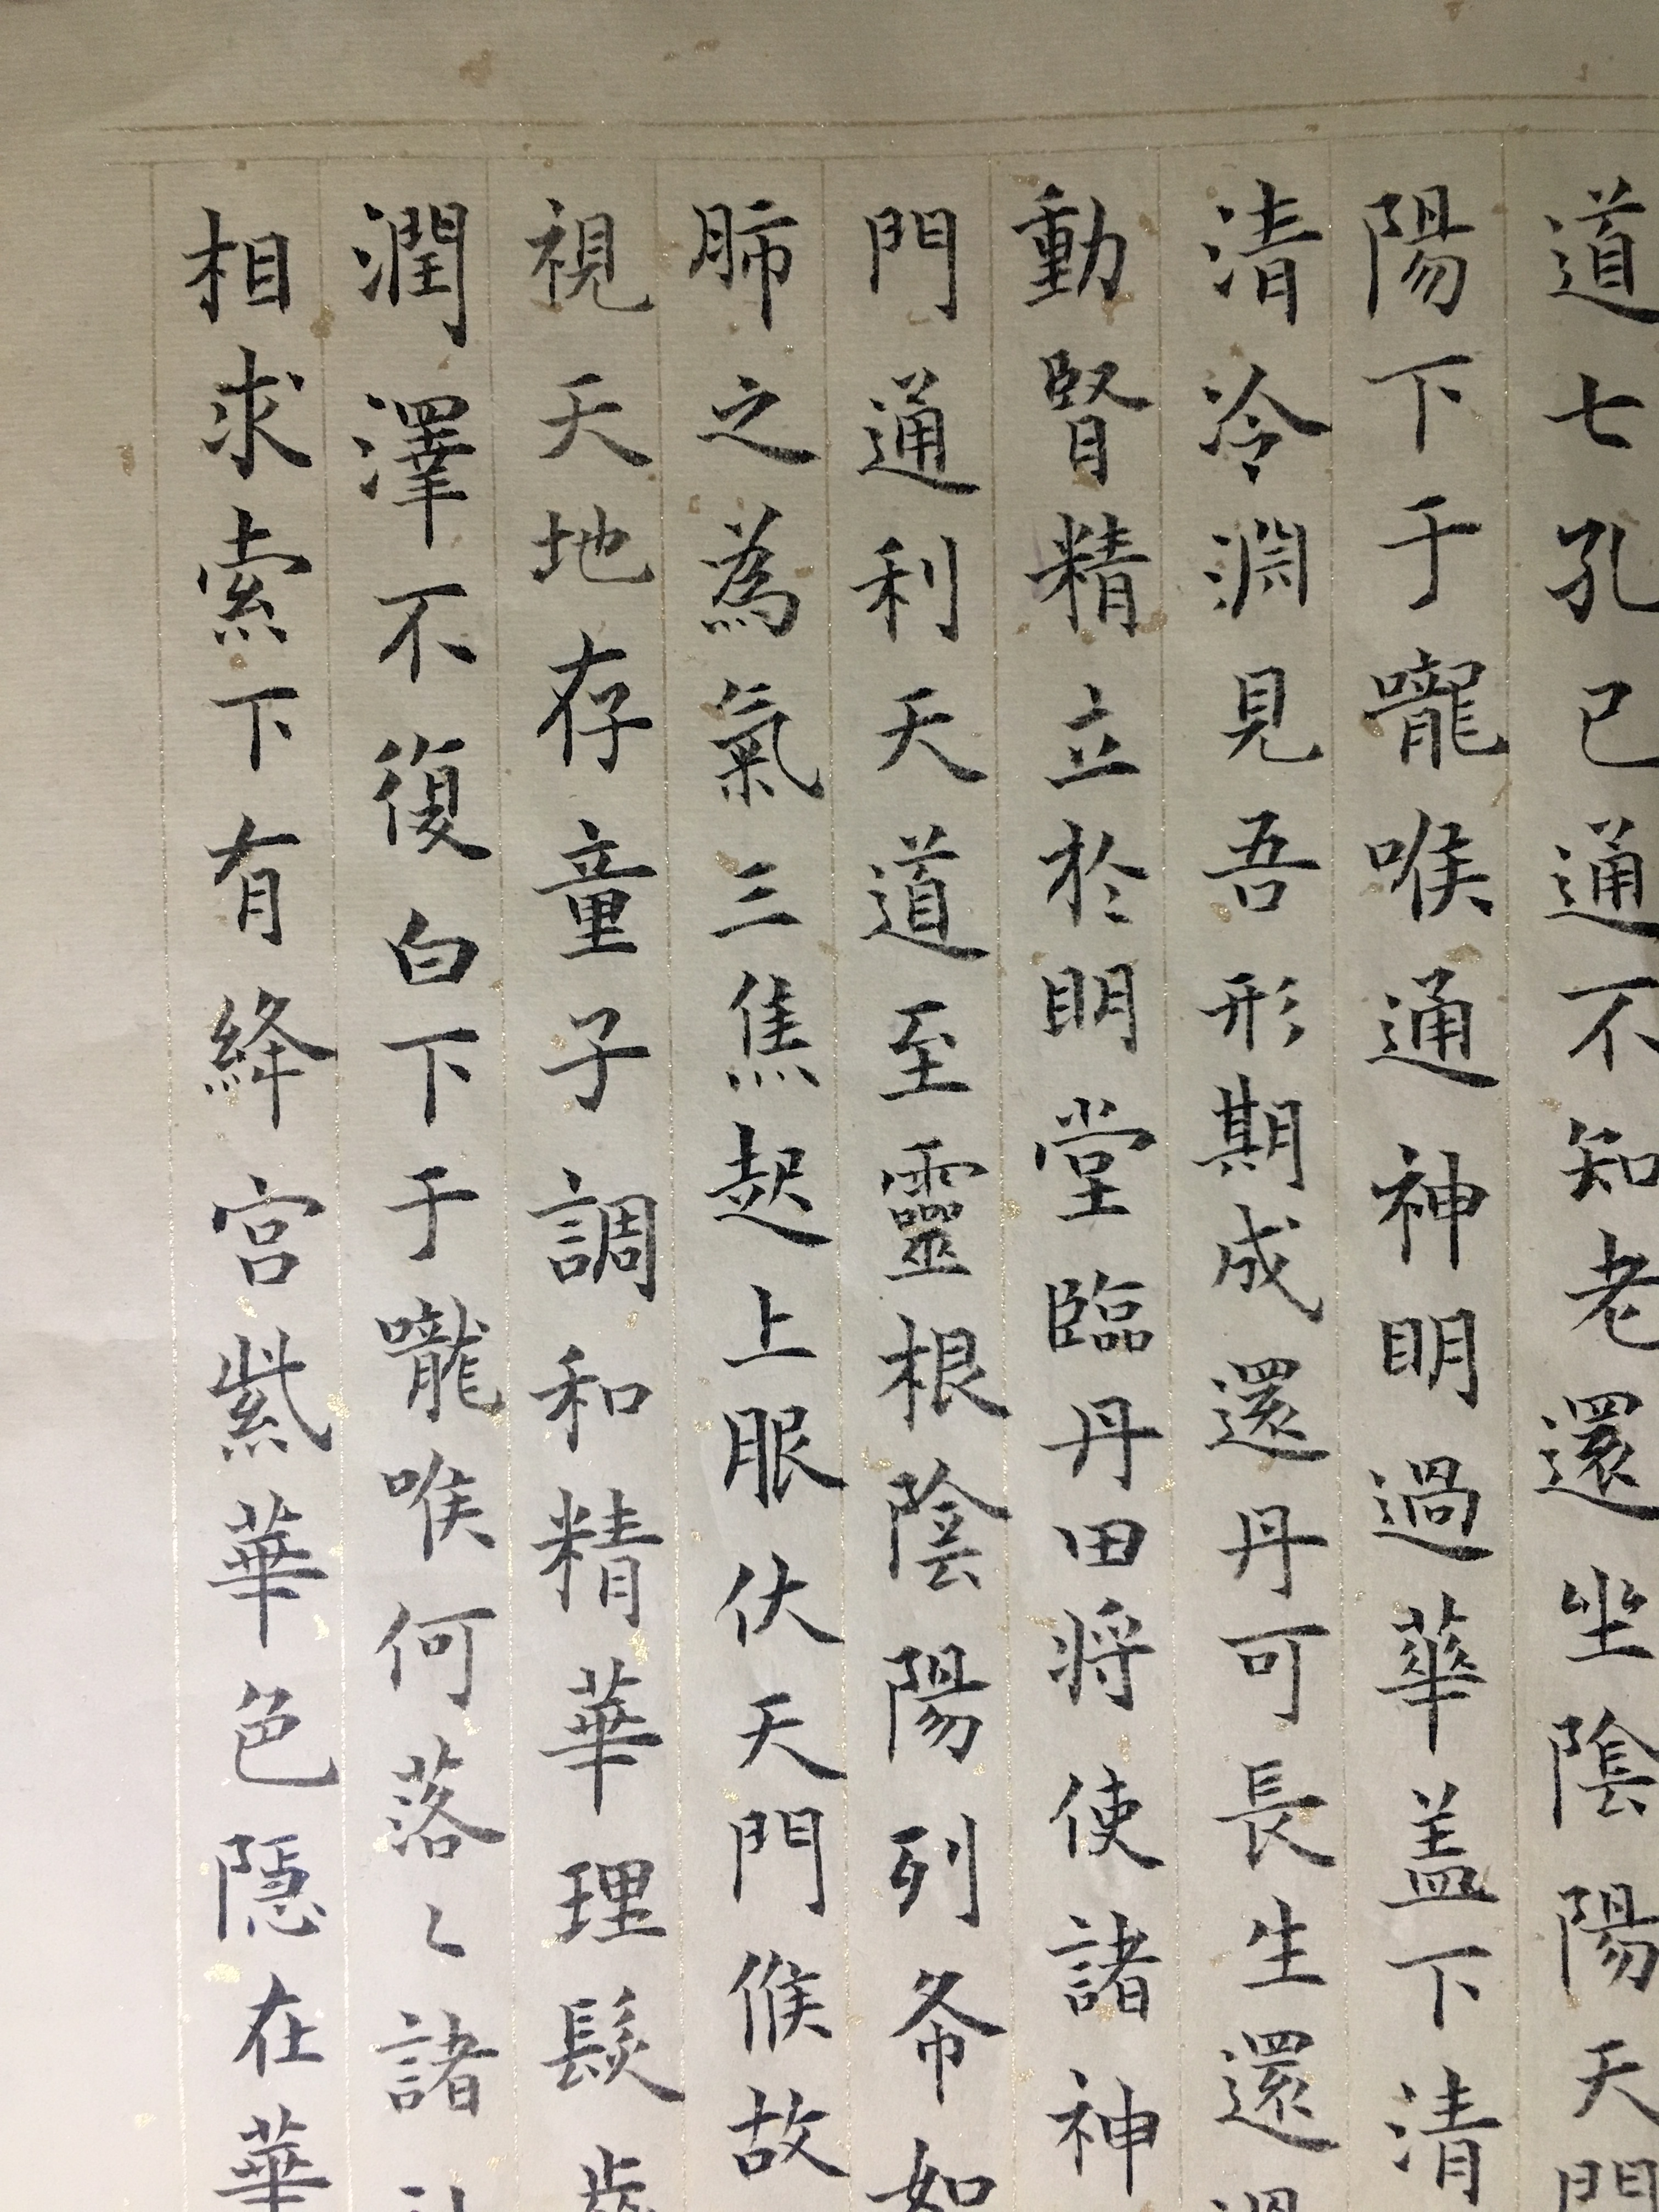 道七孔已通不知老還坐陰陽天門
陽下于嚨喉通神明過華蓋下清
清泠淵見吾形期成還丹可長生還過
動腎精立於明堂臨丹田將使諸神
門通利天道至靈根陰陽列布如
肺之為氣三焦起上服伏天門候故
視天地存童子調和精華理髮齒
潤澤不復白下于嚨喉何落〻諸
相求索下有絳宮紫華色隱在華